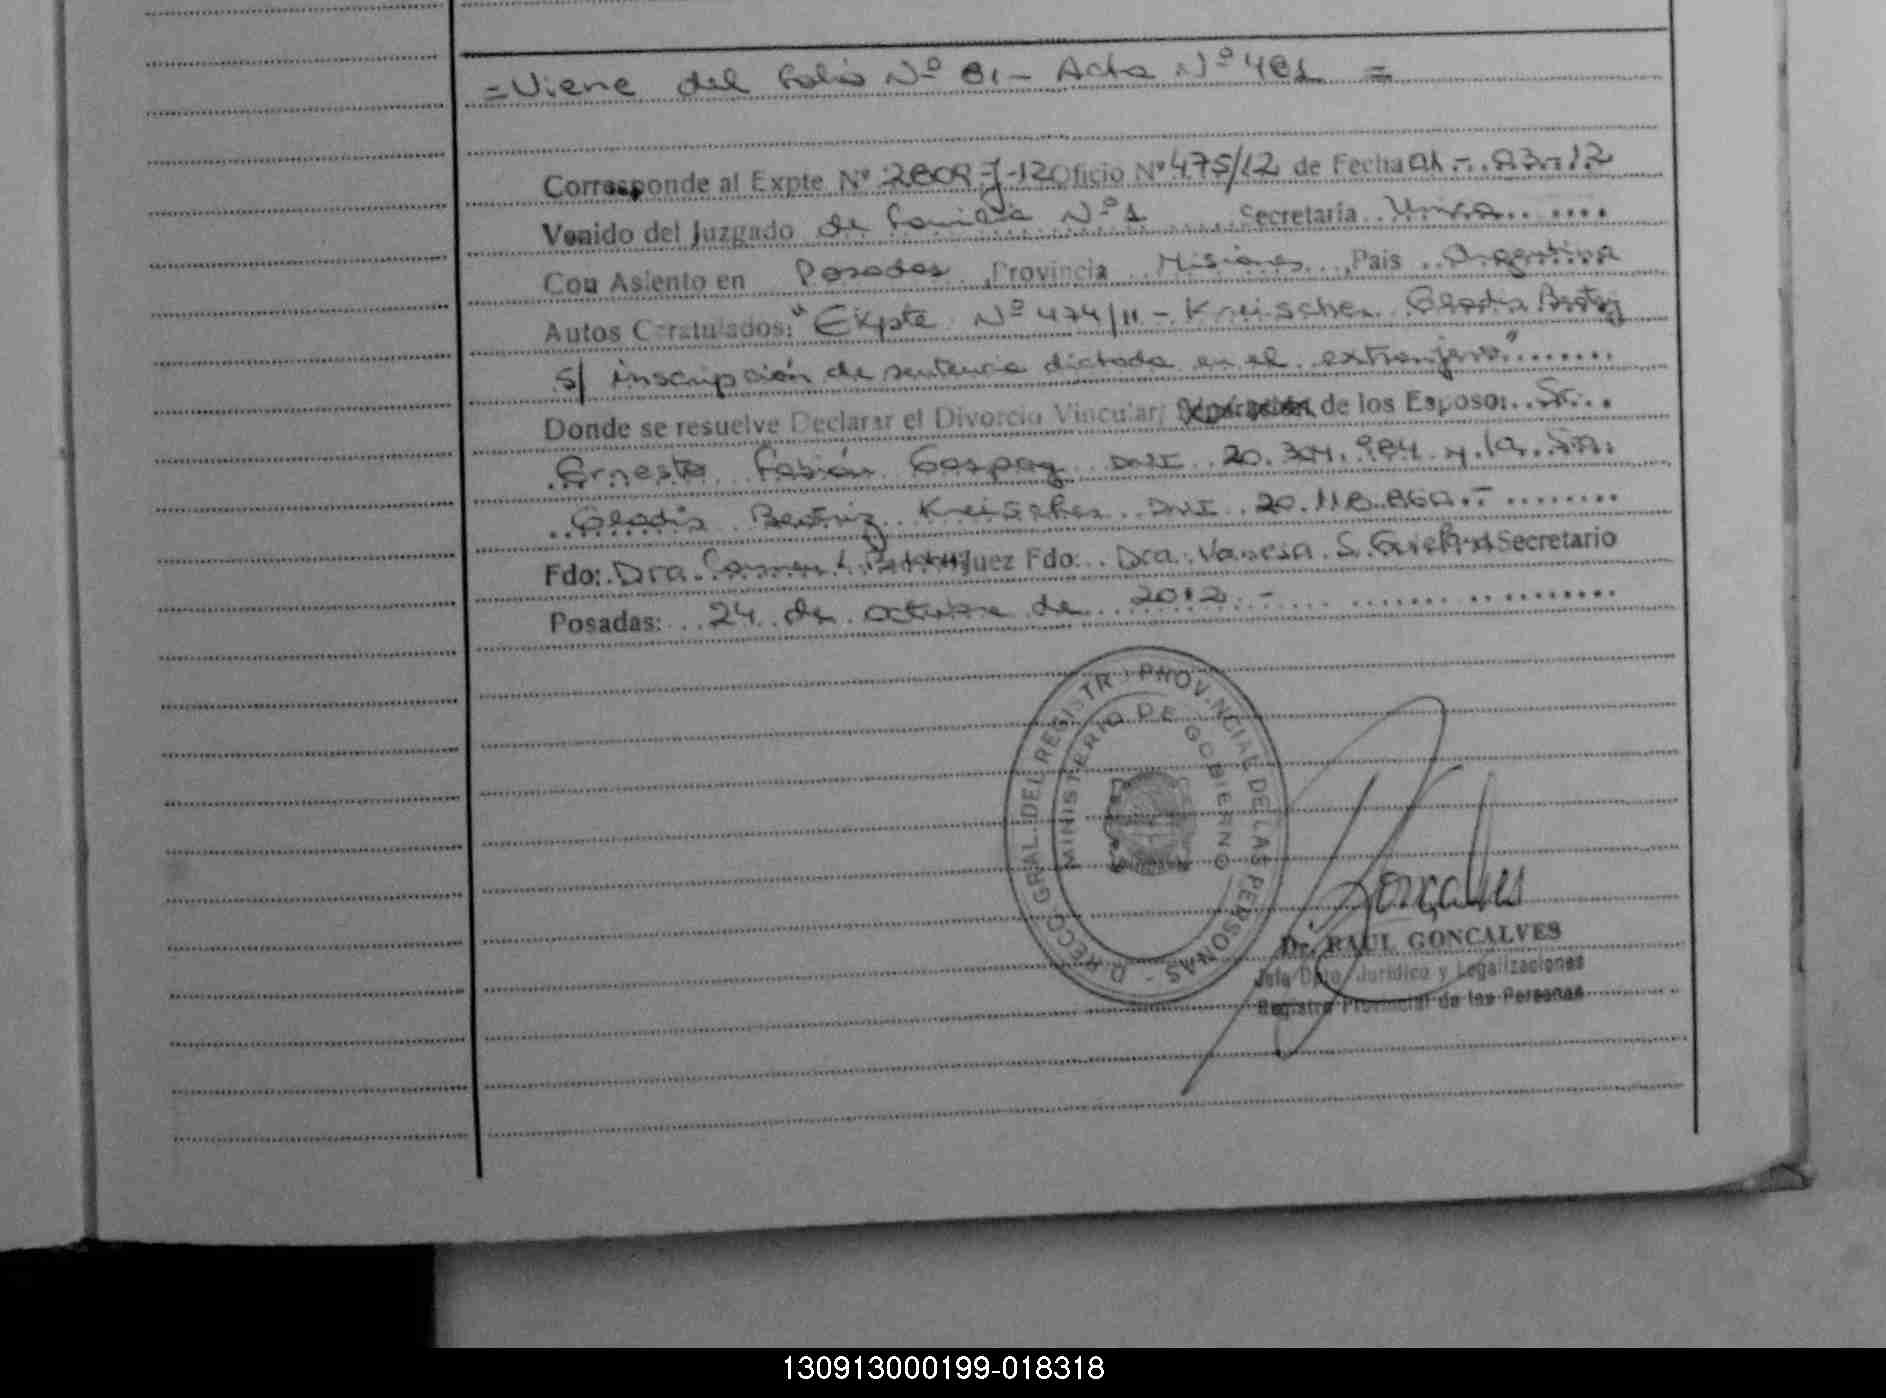 =Viene del folio Nº 81- Acta Nº 481 =
Corresponde al Expte Nº 2809-J-12 Oficio Nº 475/12 de Fecha 01-.03-.12
Venido del Juzgado de familia Nº 1 Secretaría Unica
Con Asiento en Posadas Provincia Misiones País Argentina
Autos Caratulados: "Expte Nº 474/11 - Kreischer Gladis Beatriz
S/ inscripción de sentencia dictada en el extranjero"
Donde se resuelve Declarar el Divorcio Vincular; Separación de los Esposos Sr.
Ernesto Fabián DNI y la Sra.
Gladis Beatriz Kreischer DNI 20.118.860.-
Fdo: Dra. Carmen Juez Fdo: Dra. Vanesa S. Secretario
Posadas: 24 de octubre de 2012.-
D RECC. GRAL. DEL REGISTRO PROVINCIAL DE LAS PERSONAS -
MINISTERIO DE GOBIERNO
Gonçalves
Dr. RAUL GONCALVES
Jefe Dpto. Jurídico y Legalizaciones
Registro Provincial de las Personas
130913000199-018318